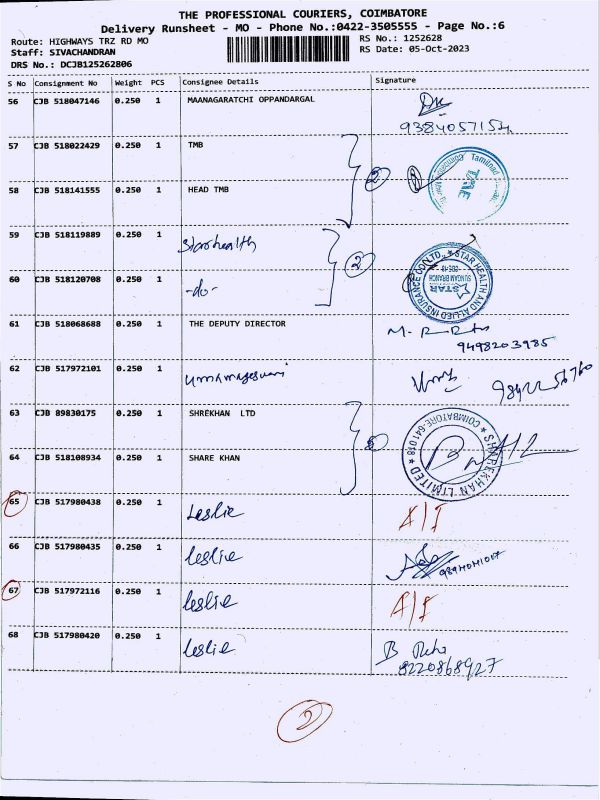 THE PROFESSIONAL COURIERS, COIMBATORE
Delivery Runsheet - MO - Phone No.:0422-3505555 - Page No.:6
Route: HIGHWAYS TRZ RD MO
RS No.: 1252628
Staff: SIVACHANDRAN
RS Date: 05-Oct-2023
DRS No.: DCJB125262806
S No Consignment No Weight PCS Consignee Details Signature
56 CJB 518047146 0.250 1 MAANAGARATCHI OPPANDARGAL
9384057154
57 CJB 518022429 0.250 1 TMB
2
58 CJB 518141555 0.250 1 HEAD TMB
59 CJB 518119889 0.250 1 Starhealth
STAR HEALTH AND ALLIED INSURANCE CO. LTD.,
STAR
SUNGAM BRANCH
2
60 CJB 518120708 0.250 1 -do-
61 CJB 518068688 0.250 1 THE DEPUTY DIRECTOR
9498203985
62 CJB 517972101 0.250 1 Umamageswari
63 CJB 89830175 0.250 1 SHREKHAN LTD
SHAREKHAN LIMITED
COIMBATORE-641 018
64 CJB 518108934 0.250 1 SHARE KHAN
65 CJB 517980438 0.250 1 Leslie A/I
66 CJB 517980435 0.250 1 leslie
67 CJB 517972116 0.250 1 leslie A/I
68 CJB 517980420 0.250 1 leslie
8220868927
2